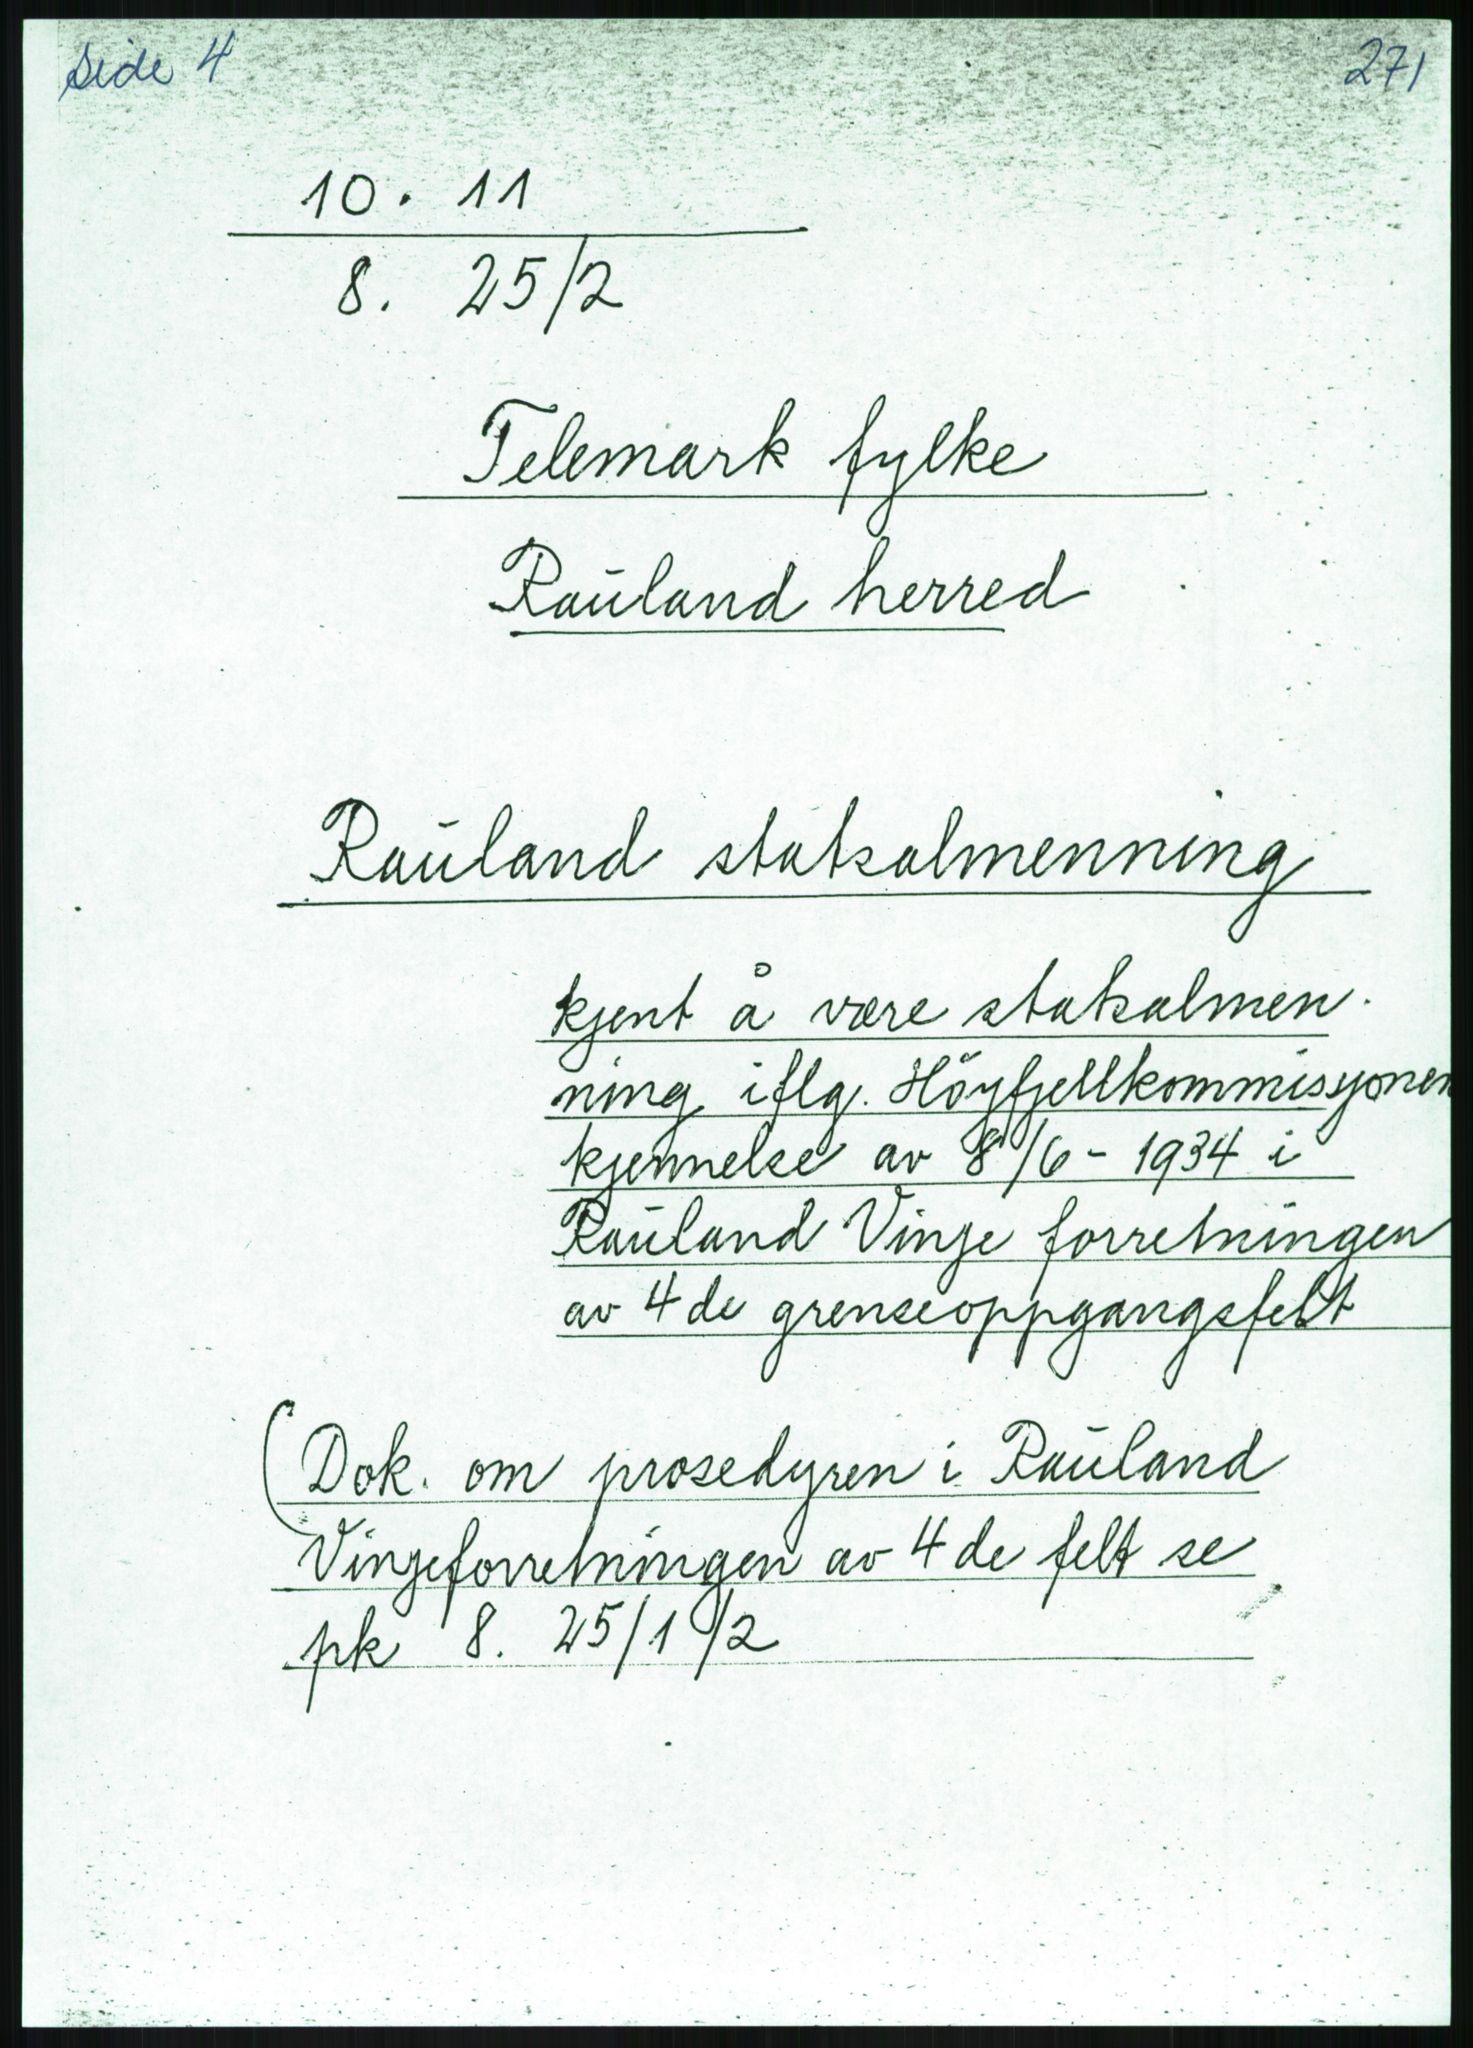 Side 4
271
10. 11
8. 25/2
Telemark fylke
Rauland herred
Rauland statsalmenning
kjent å være statsalmen-
ning iflg. Höyfjellkommisjonen
kjennelse av 8/6 - 1934 i
Rauland Vinje forretningen
av 4de grenseoppgangsfelt
(Dok. om prosedyren i Rauland
Vinjeforretningen av 4de felt se
pk 8. 25/1/2